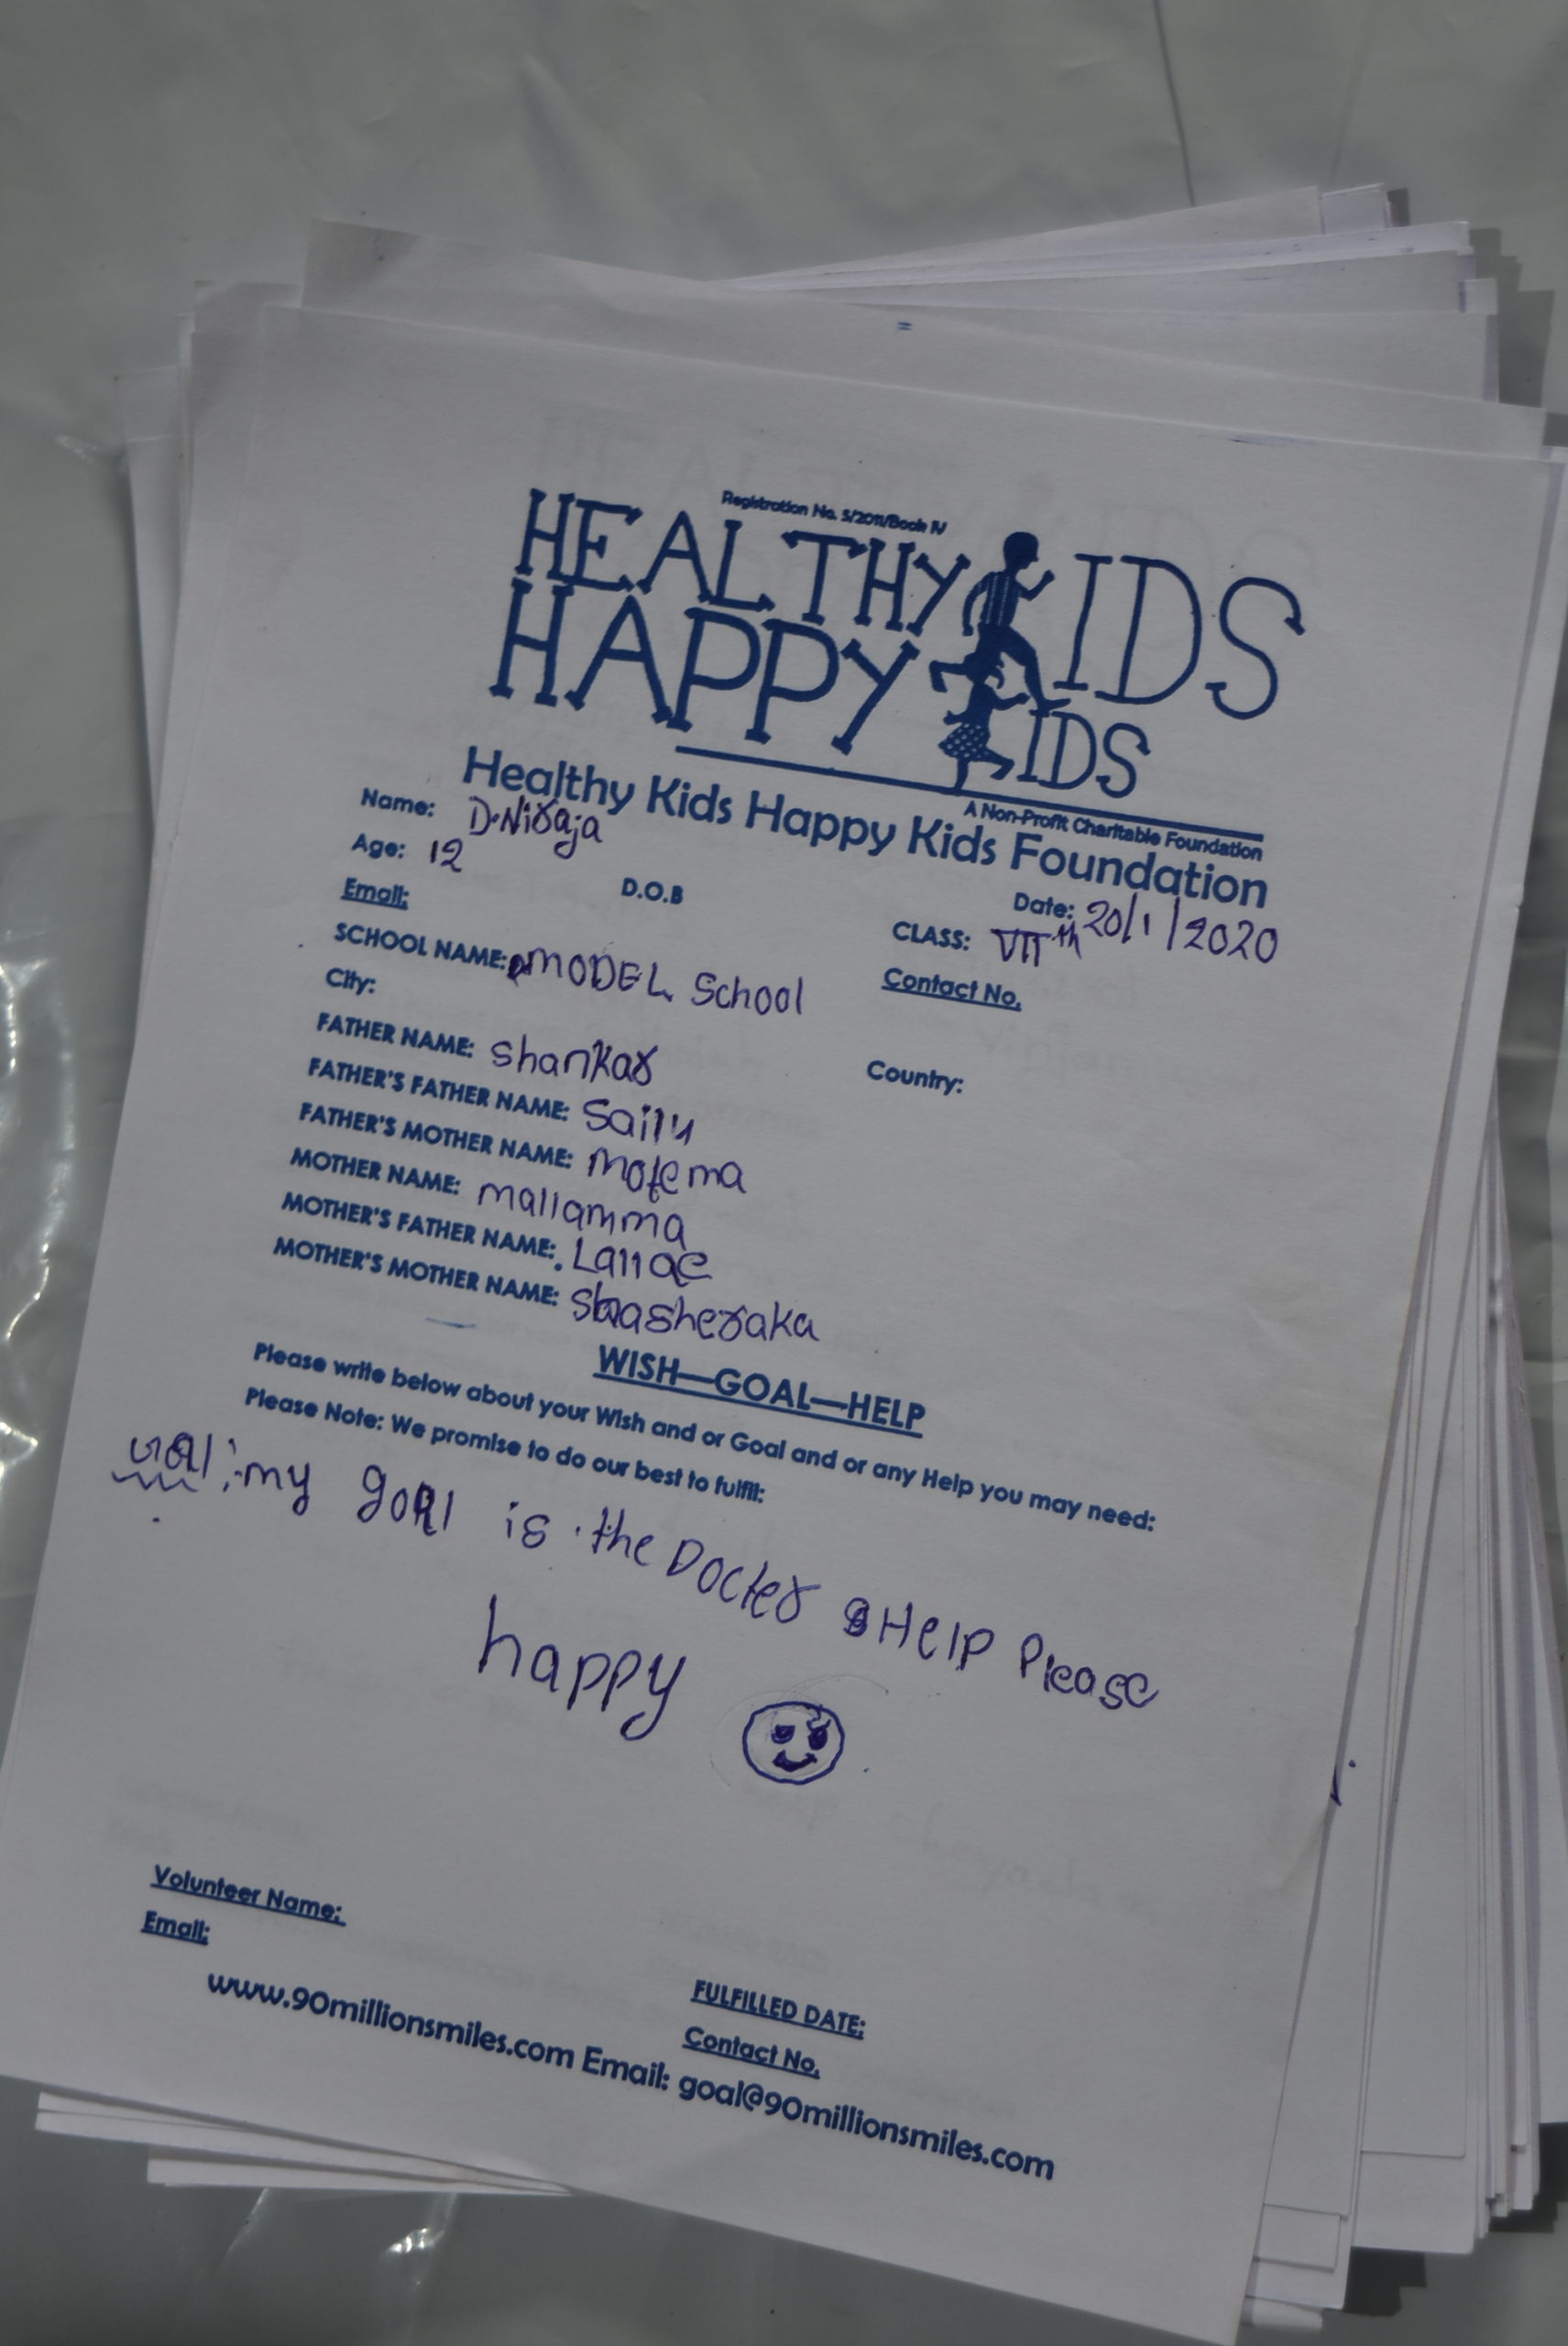 Registration No. 5/2011/Book IV
HEALTHY KIDS
HAPPY KIDS
A Non-Profit Charitable Foundation
Healthy Kids Happy Kids Foundation
Name: D.Niraja
Date: 20/1/2020
Age: 12
D.O.B
CLASS: VIIth
Email:
Contact No.
SCHOOL NAME: MODEL School
City:
Country:
FATHER NAME: Shankar
FATHER'S FATHER NAME: Sailu
FATHER'S MOTHER NAME: Motema
MOTHER NAME: mallamma
MOTHER'S FATHER NAME:
MOTHER'S MOTHER NAME:
WISH—GOAL—HELP
Please write below about your Wish and or Goal and or any Help you may need:
Please Note: We promise to do our best to fulfil:
goal :- my goal is the Docter Help Please
happy
Volunteer Name:
FULFILLED DATE:
Email:
Contact No.
www.90millionsmiles.com Email: goal@90millionsmiles.com